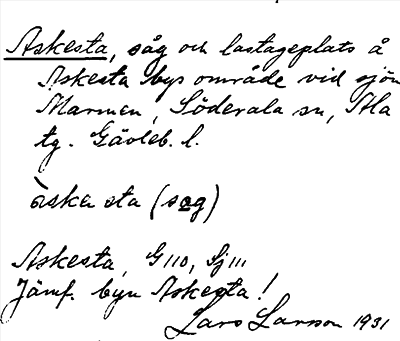 Askesta, såg och lastageplats å
Askesta bys område vid sjön
Marmen, Söderala sn, Ala
tg. Gävleb. l.
àskesta (sɑg)
Askesta, G 110, Sj 111
Jämf. byn Askesta!
Lars Larsson 1931